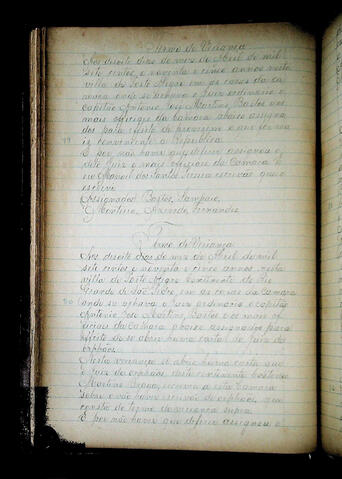 Termo de Veriança
Aos dezoito dias do mez de Abril de mil
sete centos, e noventa e cinco annos nesta
villa de Porto Alegre em as casas da ca
mara onde se achava o Juiz ordinario o
capitão Antonio José Martins Bastos e os
mais officiaes da camara abaixo assigna
dos para efeito de proverem o que fosse
conveniente a Republica
E por não haver que deferir assignou o
dito Juiz e mais officiaes da Camara E
eu Manoel dos Santos escrivão que o
escrevi
Assignados Bastos, Sampaio,
Monteiro, Azevedo, Fernandes
Termo de Veriança
Aos dezoito dias do mez de Abril de mil
sete centos e noventa e cinco annos, nesta
villa de Porto Alegre Continente do Rio
Grande de São Pedro, em as casas da Camara
onde se achava o Juiz ordinario o capitão
Antonio José Martins Bastos e os mais offi
ciaes da Camara abaixo assignados para
efeito de se abrir huma carta do Juiz de
orphãos
Nesta veriança se abrio huma carta que
o Juiz de orphãos deste continente
Martins escreveu a esta Camara
sobre não haver escrivão de orphãos, que
consta do termo da veriança supra
E por não haver que deferir assignou o